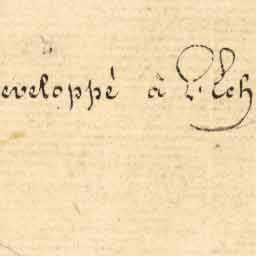 eveloppé à l'Ech